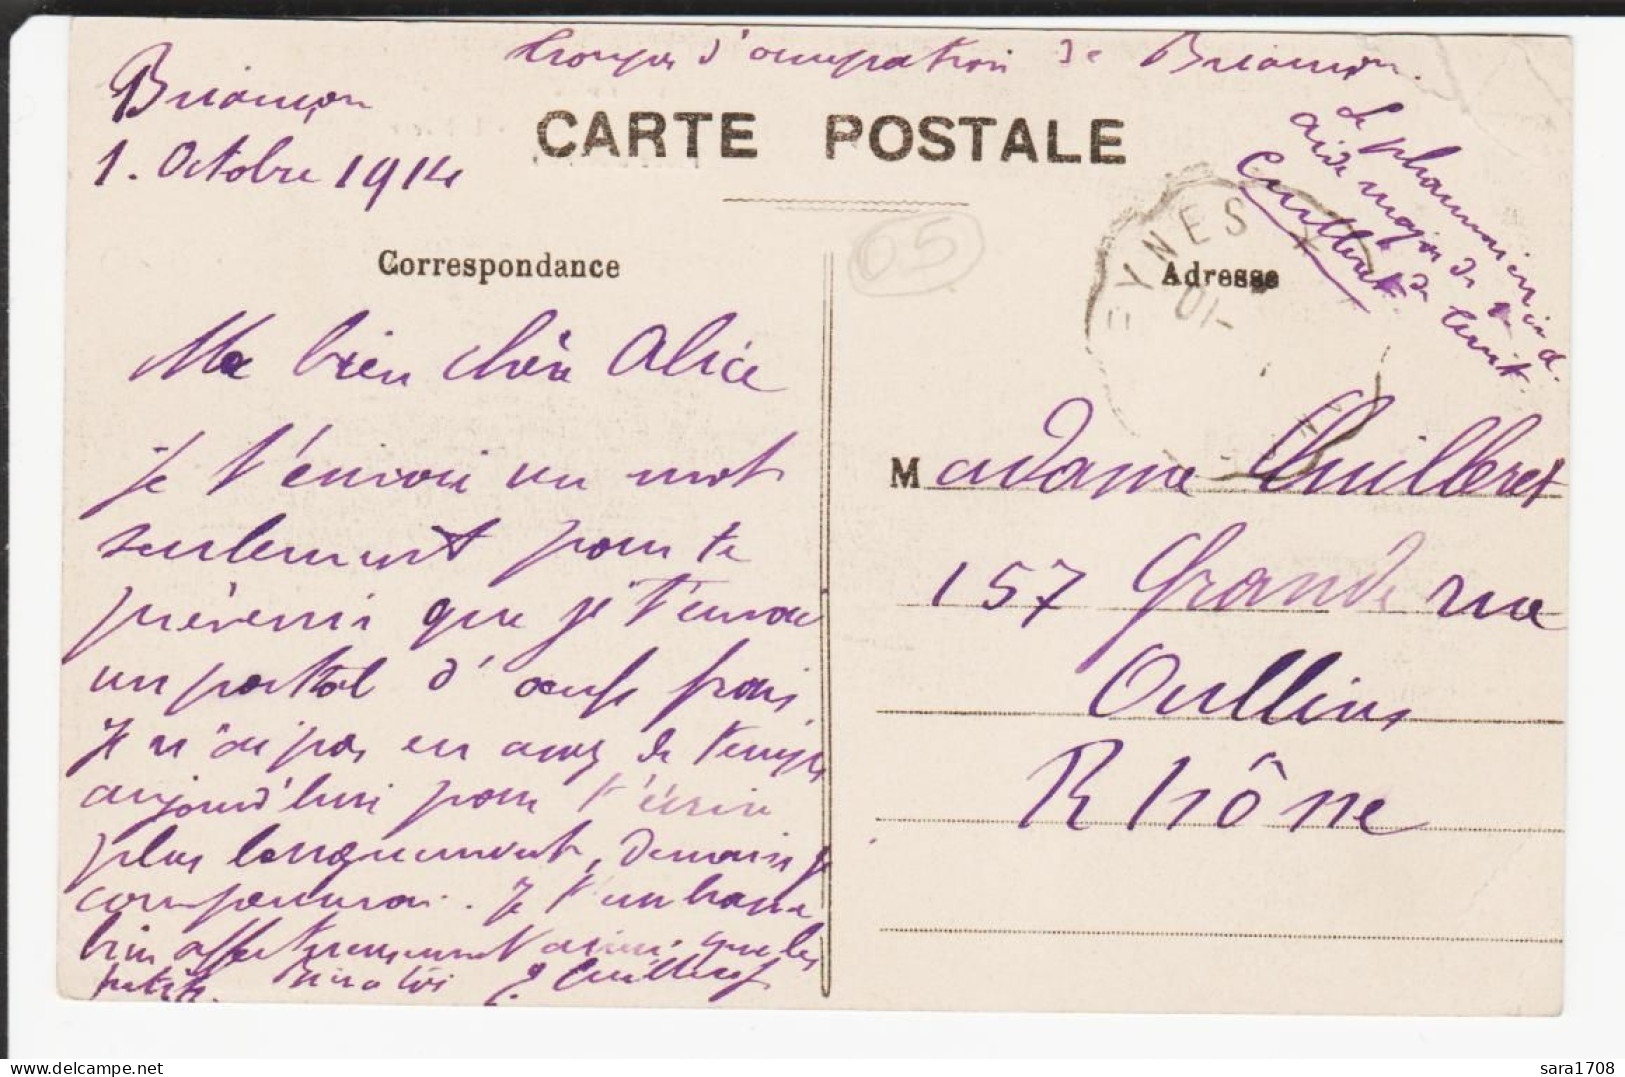 Troupes d'occupation de Briançon.
Briançon
1. Octobre 1914
CARTE POSTALE
Le pharmacien
aide major de
Cuilleret
05
EYNES
Correspondance
Adresse
Ma bien chère Alice
je t'envoie un mot
seulement pour te
prévenir que je t'envoie
un postal d'oeufs frais
Je n'ai pas eu assez de temps
aujourd'hui pour t'écrire
plus longuement, demain je
compenserai. Je t'embrasse
bien affectueusement ainsi que les
petits. mille toi E Cuilleret
Madame Cuilleret
157 Grande rue
Oullins
Rhône
sara1708